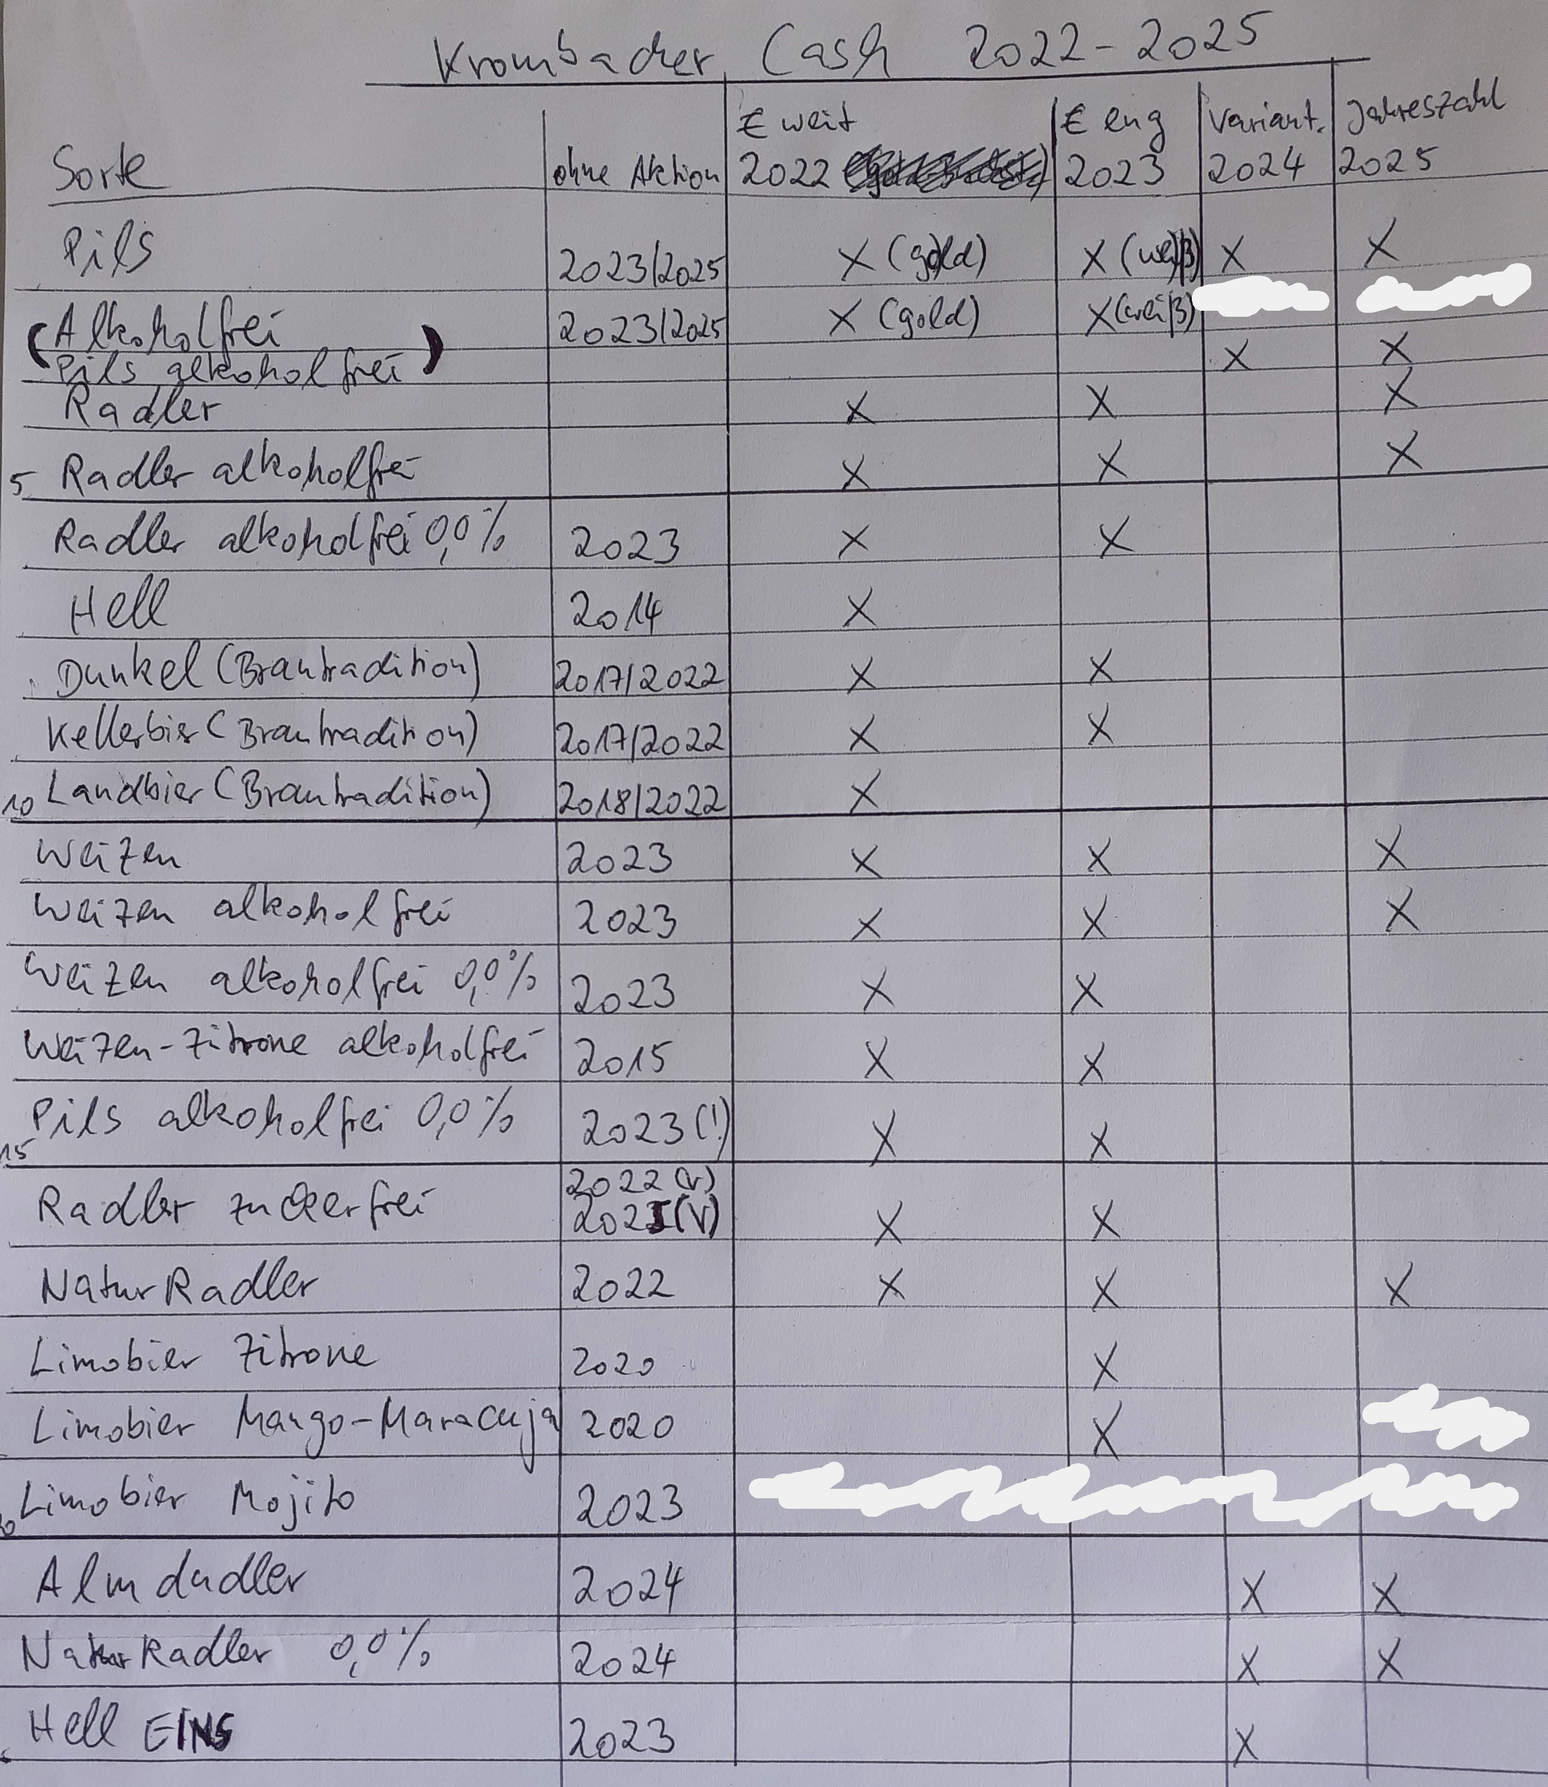 Krombacher Cash 2022-2025
Sorte ohne Aktion € weit 2022 € eng 2023 Variant. 2024 Jahreszahl 2025
Pils 2023/2025 X (gold) X (weiß) X X
(Alkoholfrei 2023/2025 X (gold) X (weiß)
Pils alkoholfrei) X X
Radler X X X
5 Radler alkoholfrei X X X
Radler alkoholfrei 0,0% 2023 X X
Hell 2014 X
Dunkel (Brautradition) 2017/2022 X X
Kellerbier (Brautradition) 2017/2022 X X
10 Landbier (Brautradition) 2018/2022 X
Weizen 2023 X X X
Weizen alkoholfrei 2023 X X X
Weizen alkoholfrei 0,0% 2023 X X
Weizen-Zitrone alkoholfrei 2015 X X
15 Pils alkoholfrei 0,0% 2023 (!) X X
Radler zuckerfrei 2022 (V) 2025 (V) X X
NaturRadler 2022 X X X
Limobier Zitrone 2020 X
Limobier Mango-Maracuja 2020 X
Limobier Mojito 2023
Almdudler 2024 X X
NaturRadler 0,0% 2024 X X
Hell EINS 2023 X